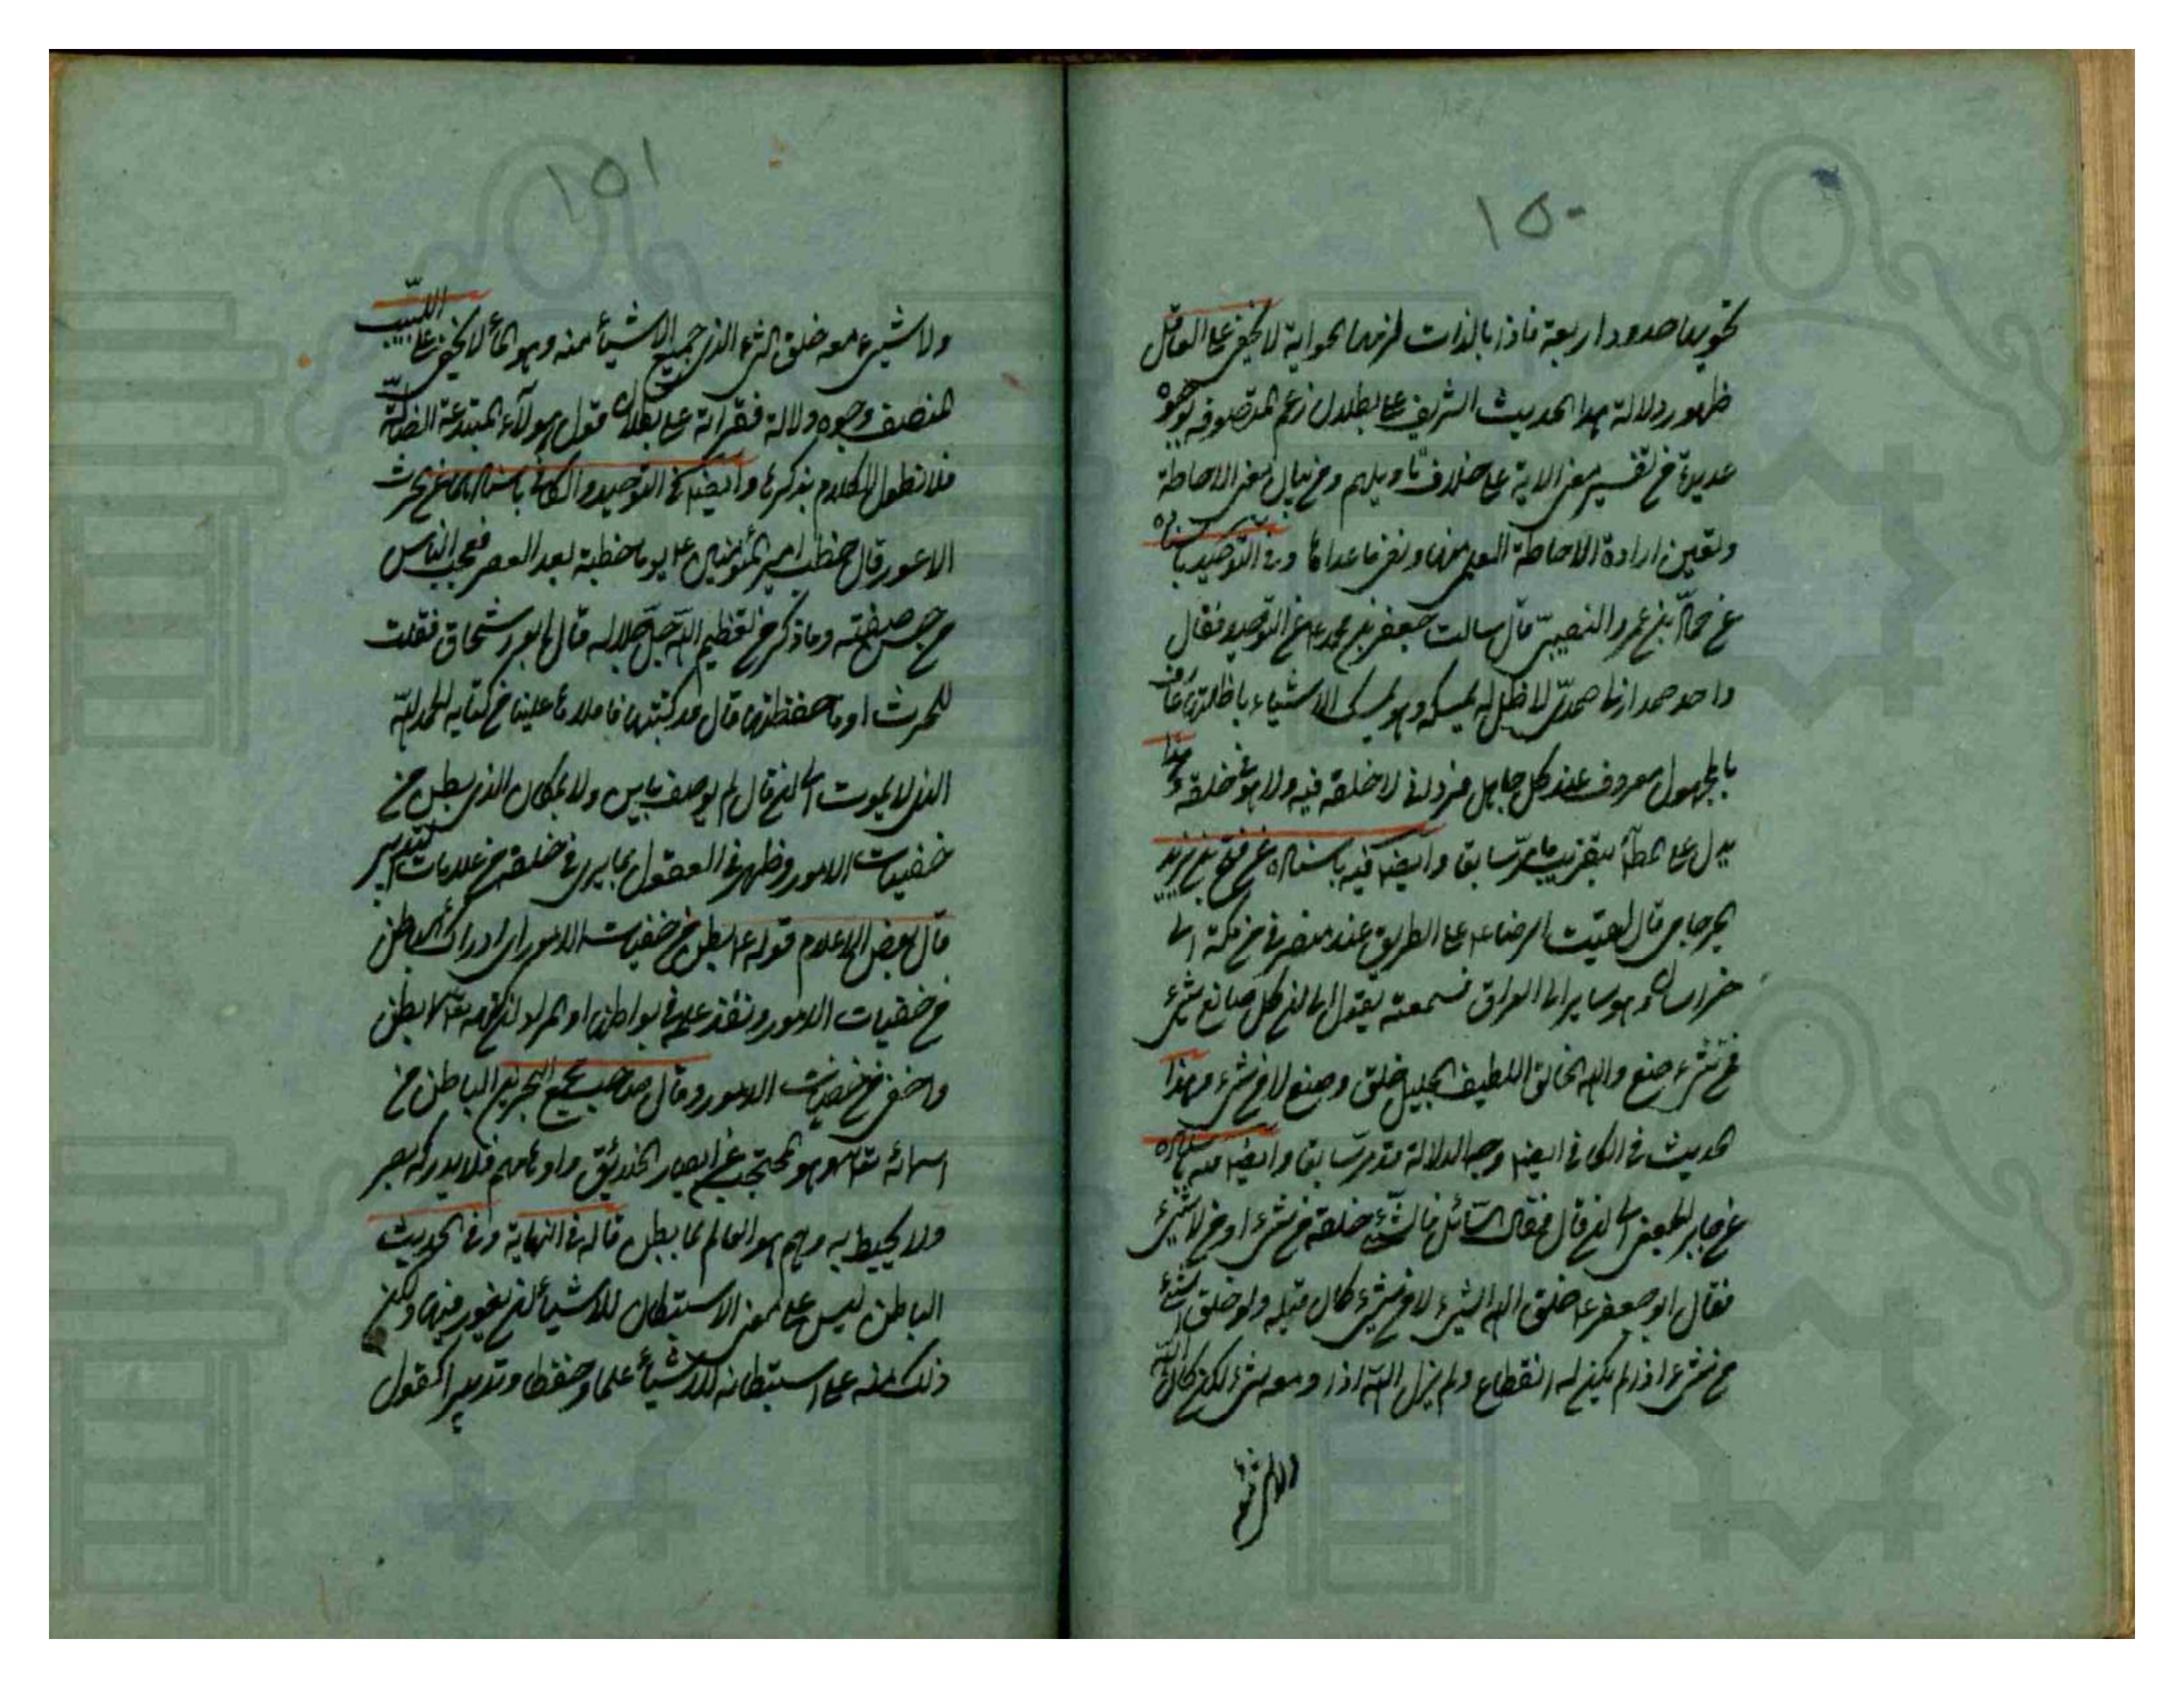 ١٥٠
تحويها حدود اربعة فاذا بالذات لزمها الحواية لا يخفى على العاقل
ظهور دلالة هذا الحديث الشريف على بطلان زعم المتصوفه بوجوه
عديدة من تفسير معنى الاية على خلاف تاويلهم ومن بيان معنى الاحاطة
وتعيين ارادة الاحاطة العلمى منها ونفى ما عداها وفى التوحيد باسناده
عن حماد بن عمرو النصيبى قال سالت جعفر بن محمد ع عن التوحيد فقال
واحد صمد ازلى صمدى لا ظل له يمسكه وهو يمسك الاشياء باظلتها عارف
بالمجهول معروف عند كل جاهل فردانى لا خلقه فيه ولا هو فى خلقه وهذا
يدل على المط بتقريب مر سابقا وايضا فيه باسناده عن فتح بن يزيد
الجرجانى قال لقيت الرضا ع على الطريق عند منصرفى من مكة الى
خراسان وهو ساير الى العراق فسمعته يقول الى ان كل صانع شىء
فمن شىء صنع والله الخالق اللطيف الجليل خلق وصنع لا من شىء وهذا
الحديث فى الكافى ايضا وجه الدلالة قد مر سابقا وايضا فيه باسناده
عن جابر الجعفى الى ان قال فقال السائل فالشىء خلقه من شىء او من لا شىء
فقال ابو جعفر ع خلق الله الشىء لا من شىء كان قبله ولو خلق الشىء
من شىء اذا لم يكن له انقطاع ولم يزل الله اذا ومعه شىء لكن كان الله
ولا شىء
١٥١
ولا شىء معه خلق الشىء الذى جميع الاشياء منه وهو الماء لا يخفى على اللبيب
المنصف وجوه دلالة فقراته على بطلان قول هولآء المبتدعة الضالة
فلا نطول الكلام بذكرها وايضا فى التوحيد والكافى باسنادهما عن الحرث
الاعور قال خطب امير المؤمنين ع يوما خطبة بعد العصر فعجب الناس
من حسن صفته وما ذكر من تعظيم الله جل جلاله قال ابو اسحاق فقلت
للحرث او ما حفظتها قال قد كتبتها فاملاها علينا من كتابه الحمد لله
الذى لا يموت الى ان قال لم يوصف باين ولا بمكان الذى بطن من
خفيات الامور وظهر فى العقول بما يرى فى خلقه من علامات التدبير
قال بعض الاعلام قوله ع بطن من خفيات الامور اى ادراك الباطن
من خفيات الامور ونفذ علمه فى بواطنها او المراد ان كنهه تعالى ابطن
واخفى من خفيات الامور وقال صاحب مجمع البحرين الباطن من
اسمائه تعالى وهو المحتجب عن ابصار الخلائق واوهامهم فلا يدركه بصر
ولا يحيط به وهم هو العالم بما بطن قاله فى النهاية وفى الحديث
الباطن ليس على معنى الاستبطان للاشياء ان يغور فيها ولكن
ذلك منه على استبطانه للاشياء علما وحفظا وتدبيرا كقول